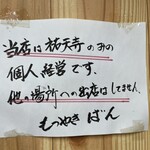 当店は祐天寺のみの
個人経営です.
他の場所への出店はしてません.
もつやき ばん